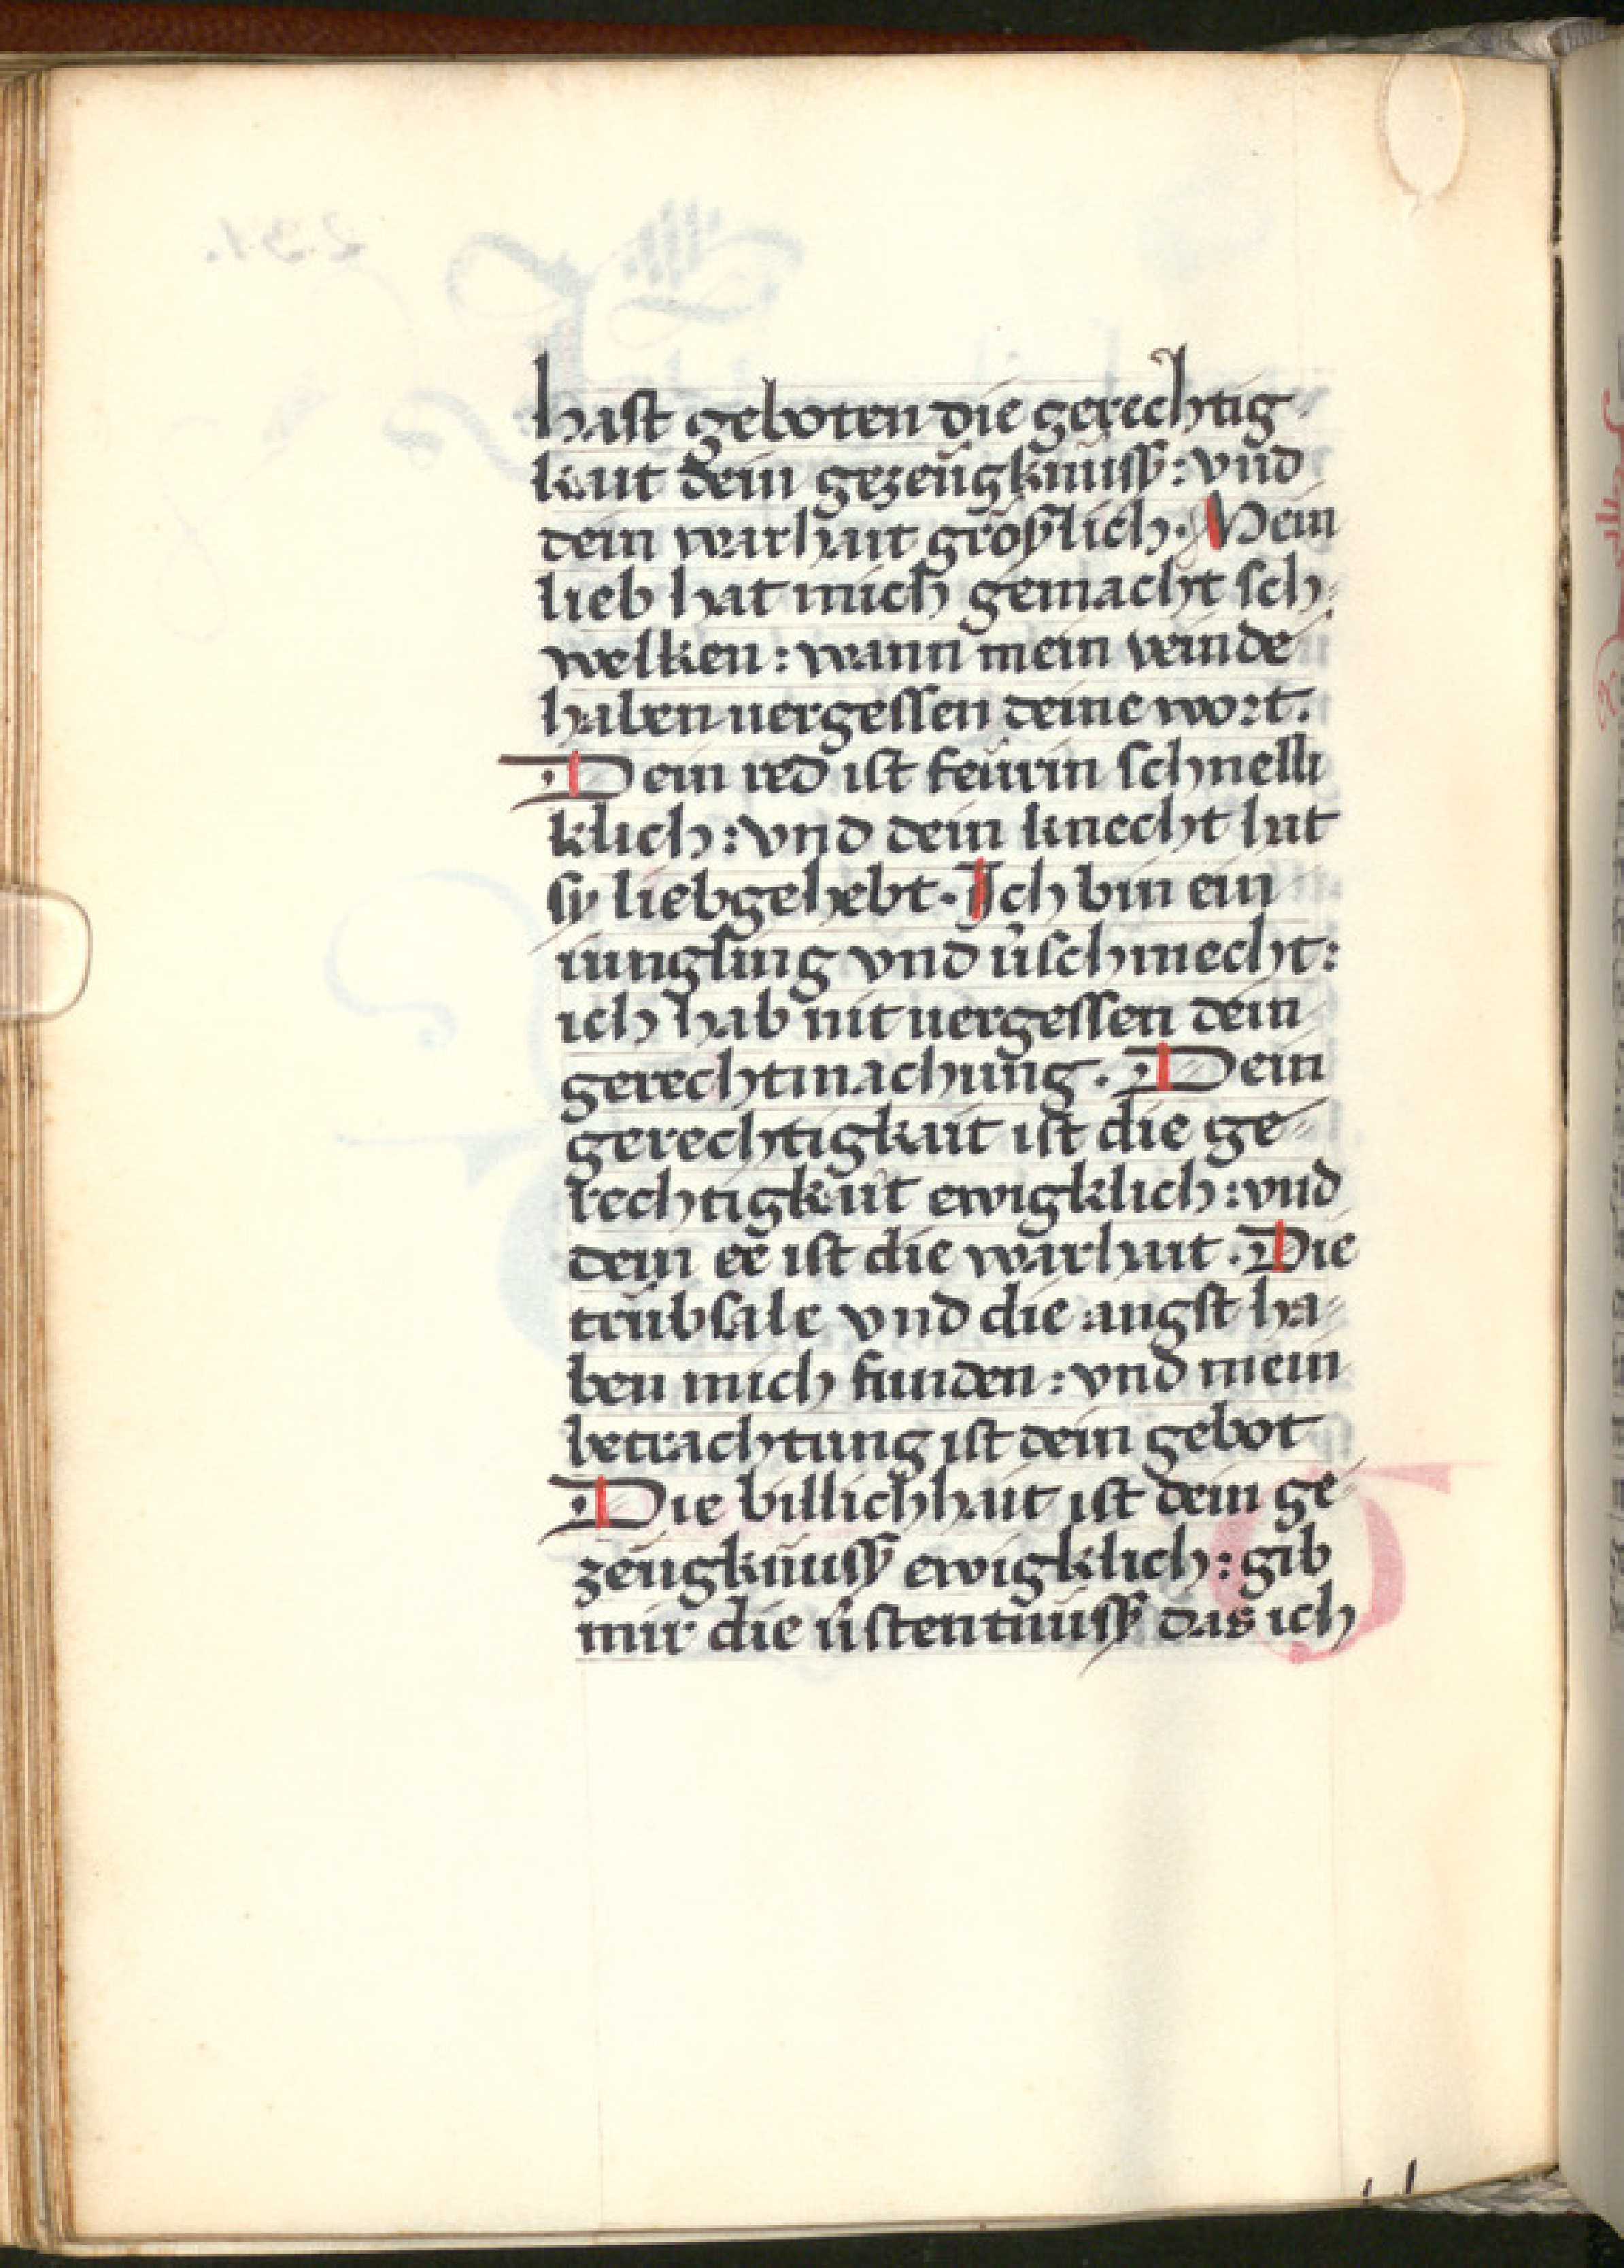 hast geboten die gerechtig
kait dein gezeügknuss: vnd
dein warhait gröslich. Mein
lieb hat mich gemacht sch
welken: wann mein veinde
haben uergessen deine wort.
Dein red ist feürin schnelli
klich: vnd dein knecht hat
sy liebgehebt. Ich bin ein
iungling vnd ũschmecht:
ich hab nit uergessen dein
gerechtmachung. Dein
gerechtigkait ist die ge
rechtigkait ewigklich: vnd
dein ee ist die warhait. Die
trübsale vnd die angst ha
ben mich funden: vnd mein
betrachtung ist dein gebot
Die billichhait ist dein ge
zeügknuss ewigklich: gib
mir die ũstentnuss das ich